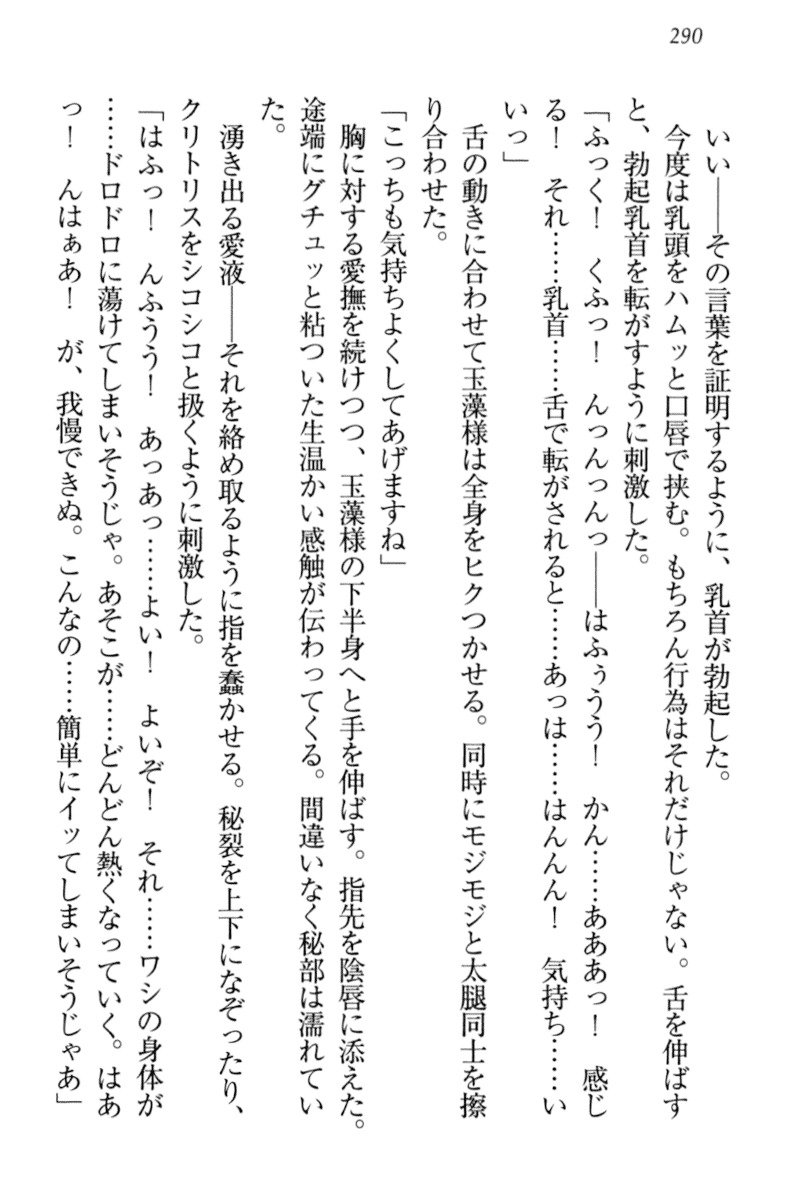 290
いい――その言葉を証明するように、乳首が勃起した。
今度は乳頭をハムッと口唇で挟む。もちろん行為はそれだけじゃない。舌を伸ばす
と、勃起乳首を転がすように刺激した。
「ふっく！　くふっ！　んっんっんっ――はふぅうう！　かん……あああっ！　感じ
る！　それ……乳首……舌で転がされると……あっは……はんんん！　気持ち……い
いっ」
舌の動きに合わせて玉藻様は全身をヒクつかせる。同時にモジモジと太腿同士を擦
り合わせた。
「こっちも気持ちよくしてあげますね」
胸に対する愛撫を続けつつ、玉藻様の下半身へと手を伸ばす。指先を陰唇に添えた。
途端にグチュッと粘ついた生温かい感触が伝わってくる。間違いなく秘部は濡れてい
た。
湧き出る愛液――それを絡め取るように指を蠢かせる。秘裂を上下になぞったり、
クリトリスをシコシコと扱くように刺激した。
「はふっ！　んふうう！　あっあっ……よい！　よいぞ！　それ……ワシの身体が
……ドロドロに蕩けてしまいそうじゃ。あそこが……どんどん熱くなっていく。はあ
っ！　んはぁあ！　が、我慢できぬ。こんなの……簡単にイッてしまいそうじゃあ」